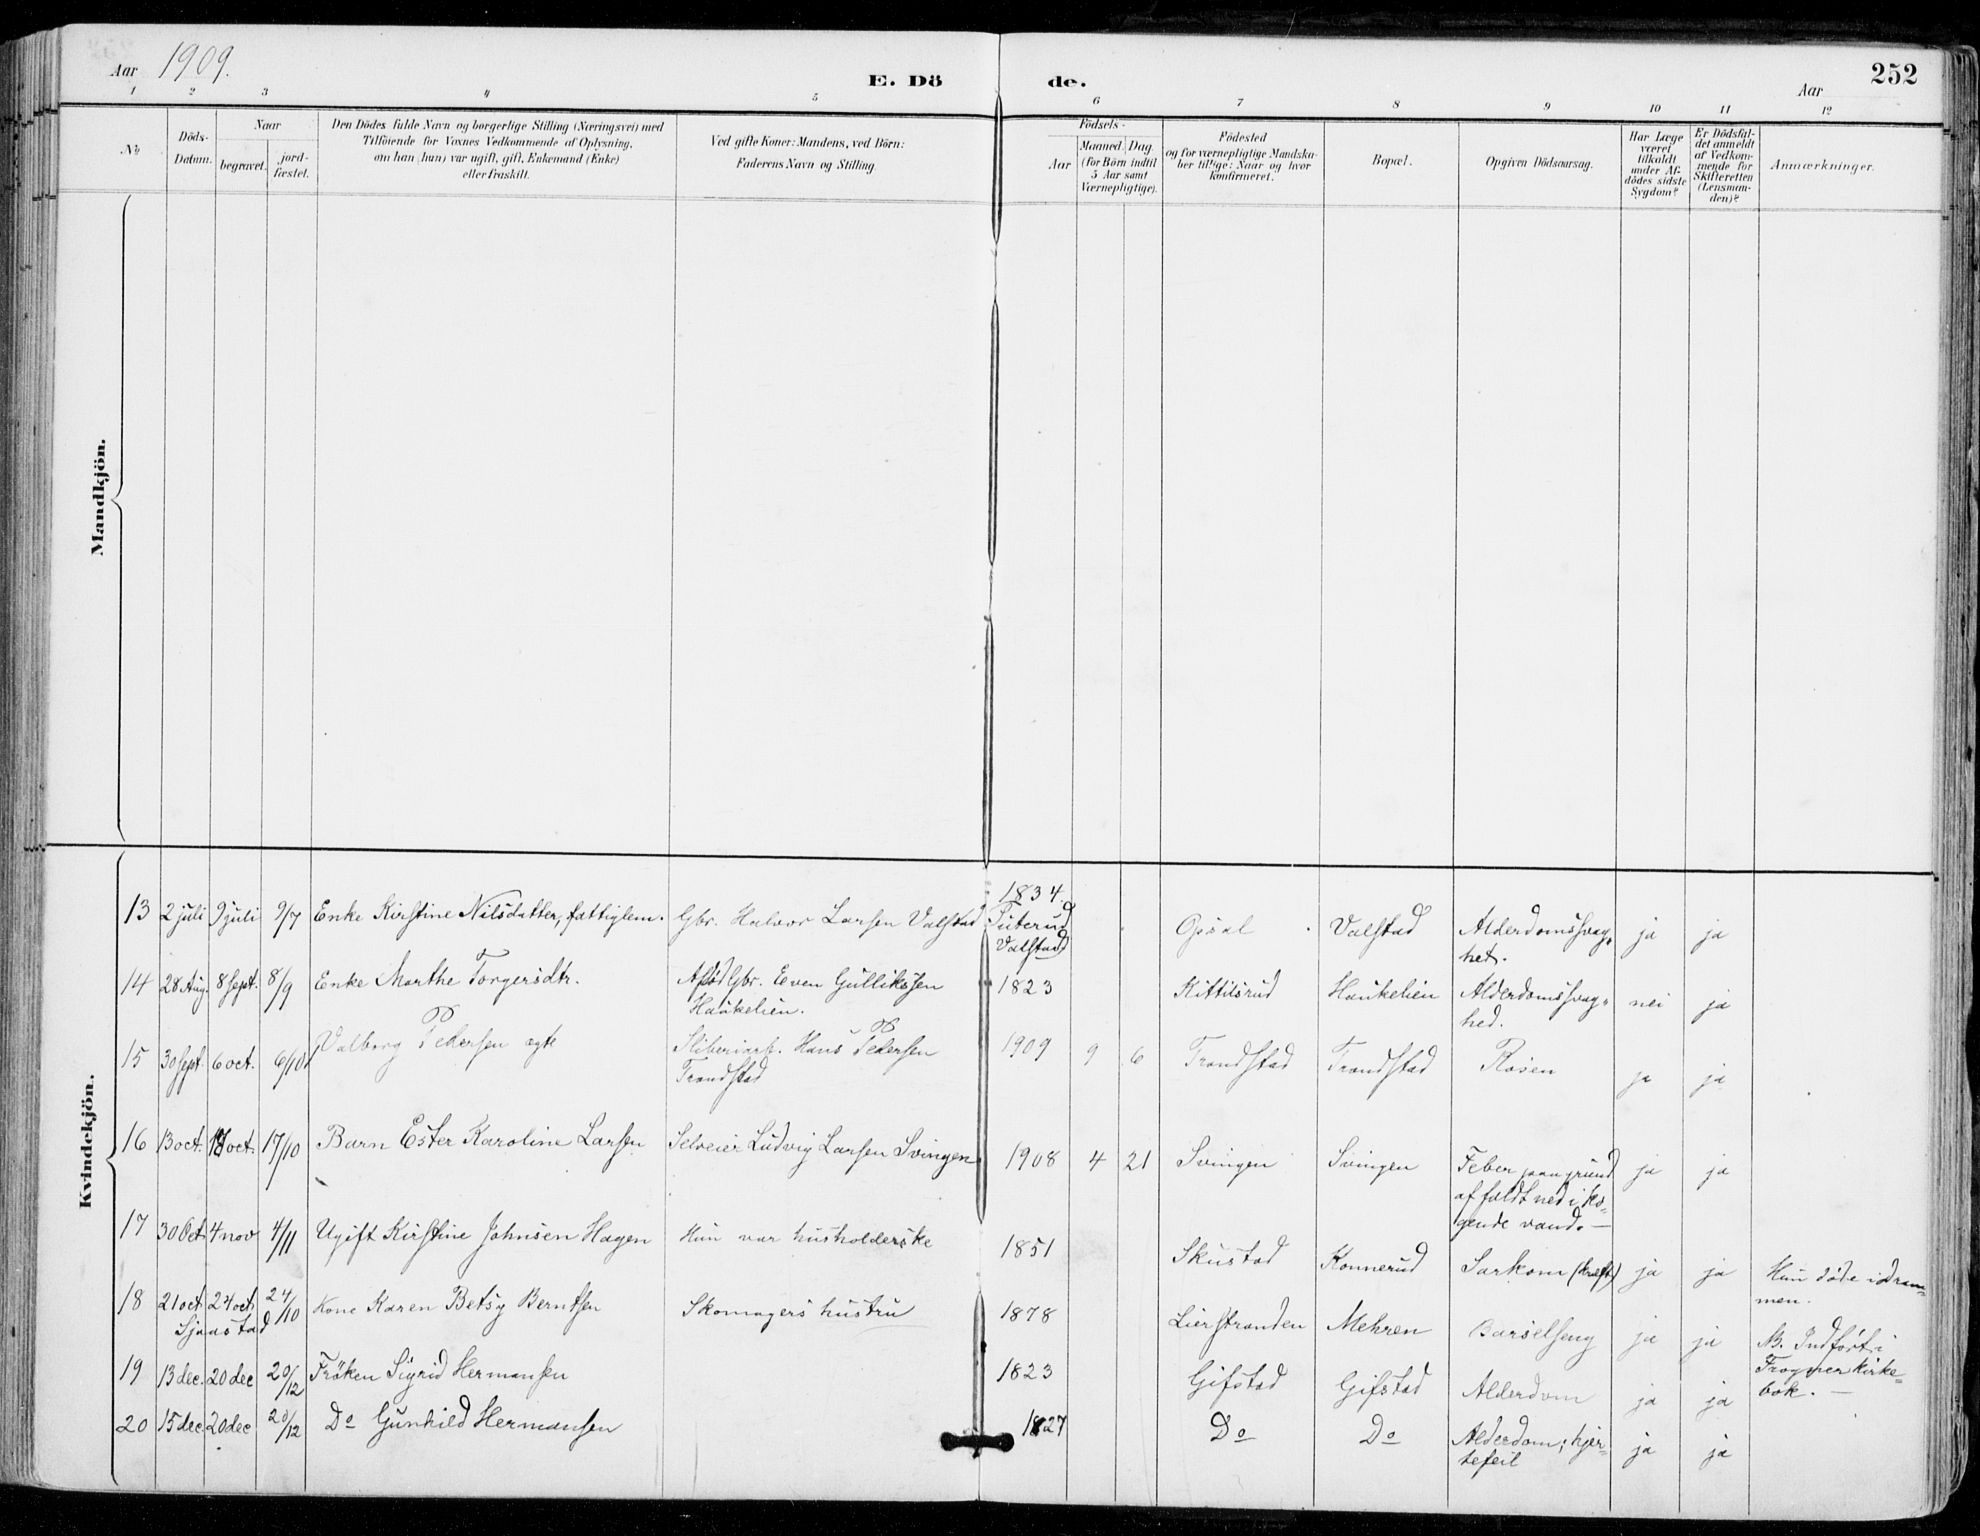 Aar 1909.
E. Dö de.
Aar 252
1 2 3 4 5 6 7 8 9 10 11 12
No
Döds-
Datum.
Naar
begravet.
jord-
fæstet.
Den Dödes fulde Navn og borgerlige Stilling (Næringsvei) med
Tilföiende for Voxnes Vedkommende af Oplysning,
om han (hun) var ugift, gift, Enkemand (Enke)
eller fraskilt.
Ved gifte Koner: Mandens, ved Börn:
Faderens Navn og Stilling.
Födsels-
Aar
Maaned. Dag.
(for Börn indtil
5 Aar samt
Værnepligtige).
Födested
og for værnepligtige Mandska-
ber tillige: Naar og hvor
konfirmeret.
Bopæl.
Opgiven Dödsaarsag.
Har Læge
været
tilkaldt
under Af-
dödes sidste
Sygdom?
Er Dödsfal-
det anmeldt
af Vedkom-
mende for
Skifteretten
(Lensman-
den)?
Anmærkninger.
Mandkjön.
Kvindekjön.
13 2 juli 9 juli 9/7 Enke Kirstine Nilsdatter, fattiglem. Gbr. Halvor Larsen Valstad 1834. Opsal Valstad Alderdomssvag- ja ja
Tuterud
Valstad
het.
14 28 Aug. 8 sept. 8/9 Enke Marthe Torgersdtr. Afdød Gbr. Even Gulliksen 1823 Kittilsrud Haukelien Alderdomssvag- nei ja
Haukelien.
hed.
15 30 sept. 6 oct. 6/10 Valborg Pedersen ægte Sliberiarb. Hans Pedersen 1909 9 6 Trondstad Trondstad Rosen ja ja
Trondstad
16 13 oct. 17 oct. 17/10 Barn Ester Karoline Larsen Selveier Ludvig Larsen Svingen 1908 4 21 Svingen Svingen Feber paa grund ja ja
af faldt ned i ko-
gende vand. —
17 30 Oct. 4 nov 4/11 Ugift Kirstine Johnsen Hagen Hun var husholderske 1851 Skustad Konnerud Sarkom (kræft) ja ja Hun døde i Dram-
men.
18 21 oct. 24 oct 24/10 Kone Karen Betsy Berntsen Skomagers hustru 1878 Lierstranden Mehren Barselseng ja ja NB. Indført i
Sjaastad
Frogner kirke-
bok. —
19 13 dec. 20 dec 20/12 Frøken Sigrid Hermansen 1823 Gifstad Gifstad Alderdom ja ja
20 15 dec. 20 dec 20/12 Do Gunhild Hermansen 1827 Do Do Alderdom; hjer- ja ja
tefeil